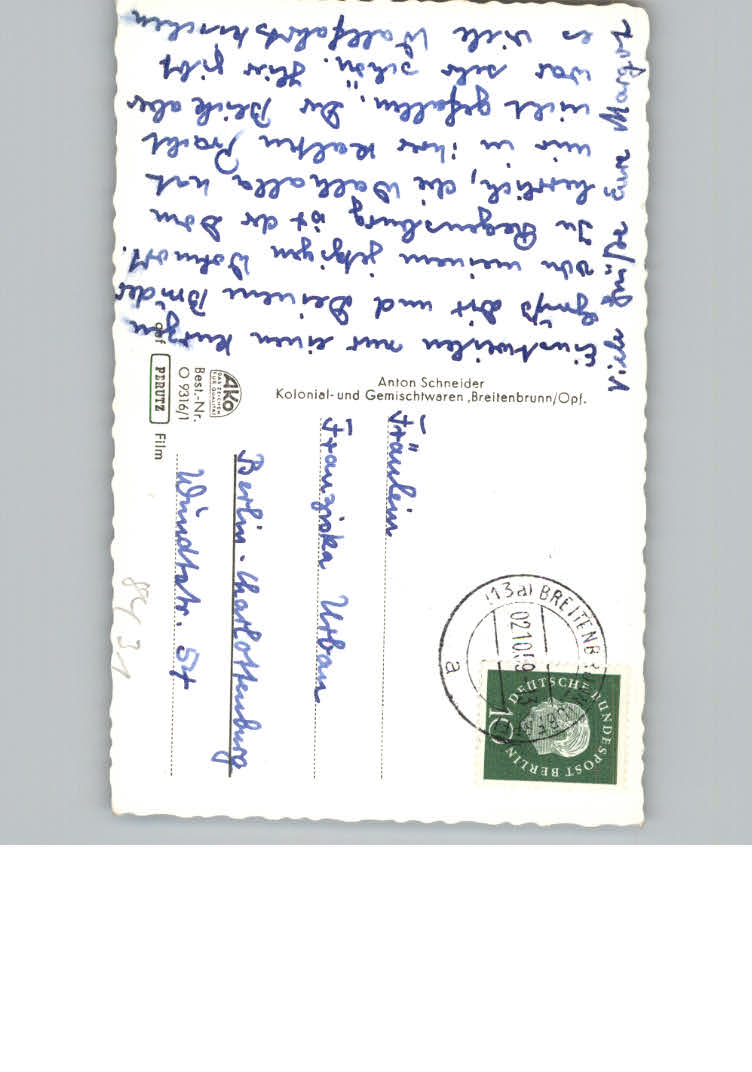 Einstweilen nur einen kurzen
Gruß Dir und Deinem Bruder
von meinem jetzigen Wohnort.
In Regensburg ist der Dom
herrlich, die Walhalla hat
mir in ihrer kalten Pracht
nicht gefallen. Der Blick aber
war sehr schön. Hier gibt
es viele Wallfahrtskirchen
Viele Grüße Eure Margot
Anton Schneider
Kolonial- und Gemischtwaren, Breitenbrunn/Opf.
AKO
DAS ZEICHEN
FÜR QUALITÄT
Best.-Nr.
O 9316/1
auf PERUTZ Film
Fräulein
Franziska Urban
Berlin-Charlottenburg
Wundtstr. 54
84 31
(13a) BREITENBR
02.10.59
a
DEUTSCHE BUNDESPOST BERLIN
10